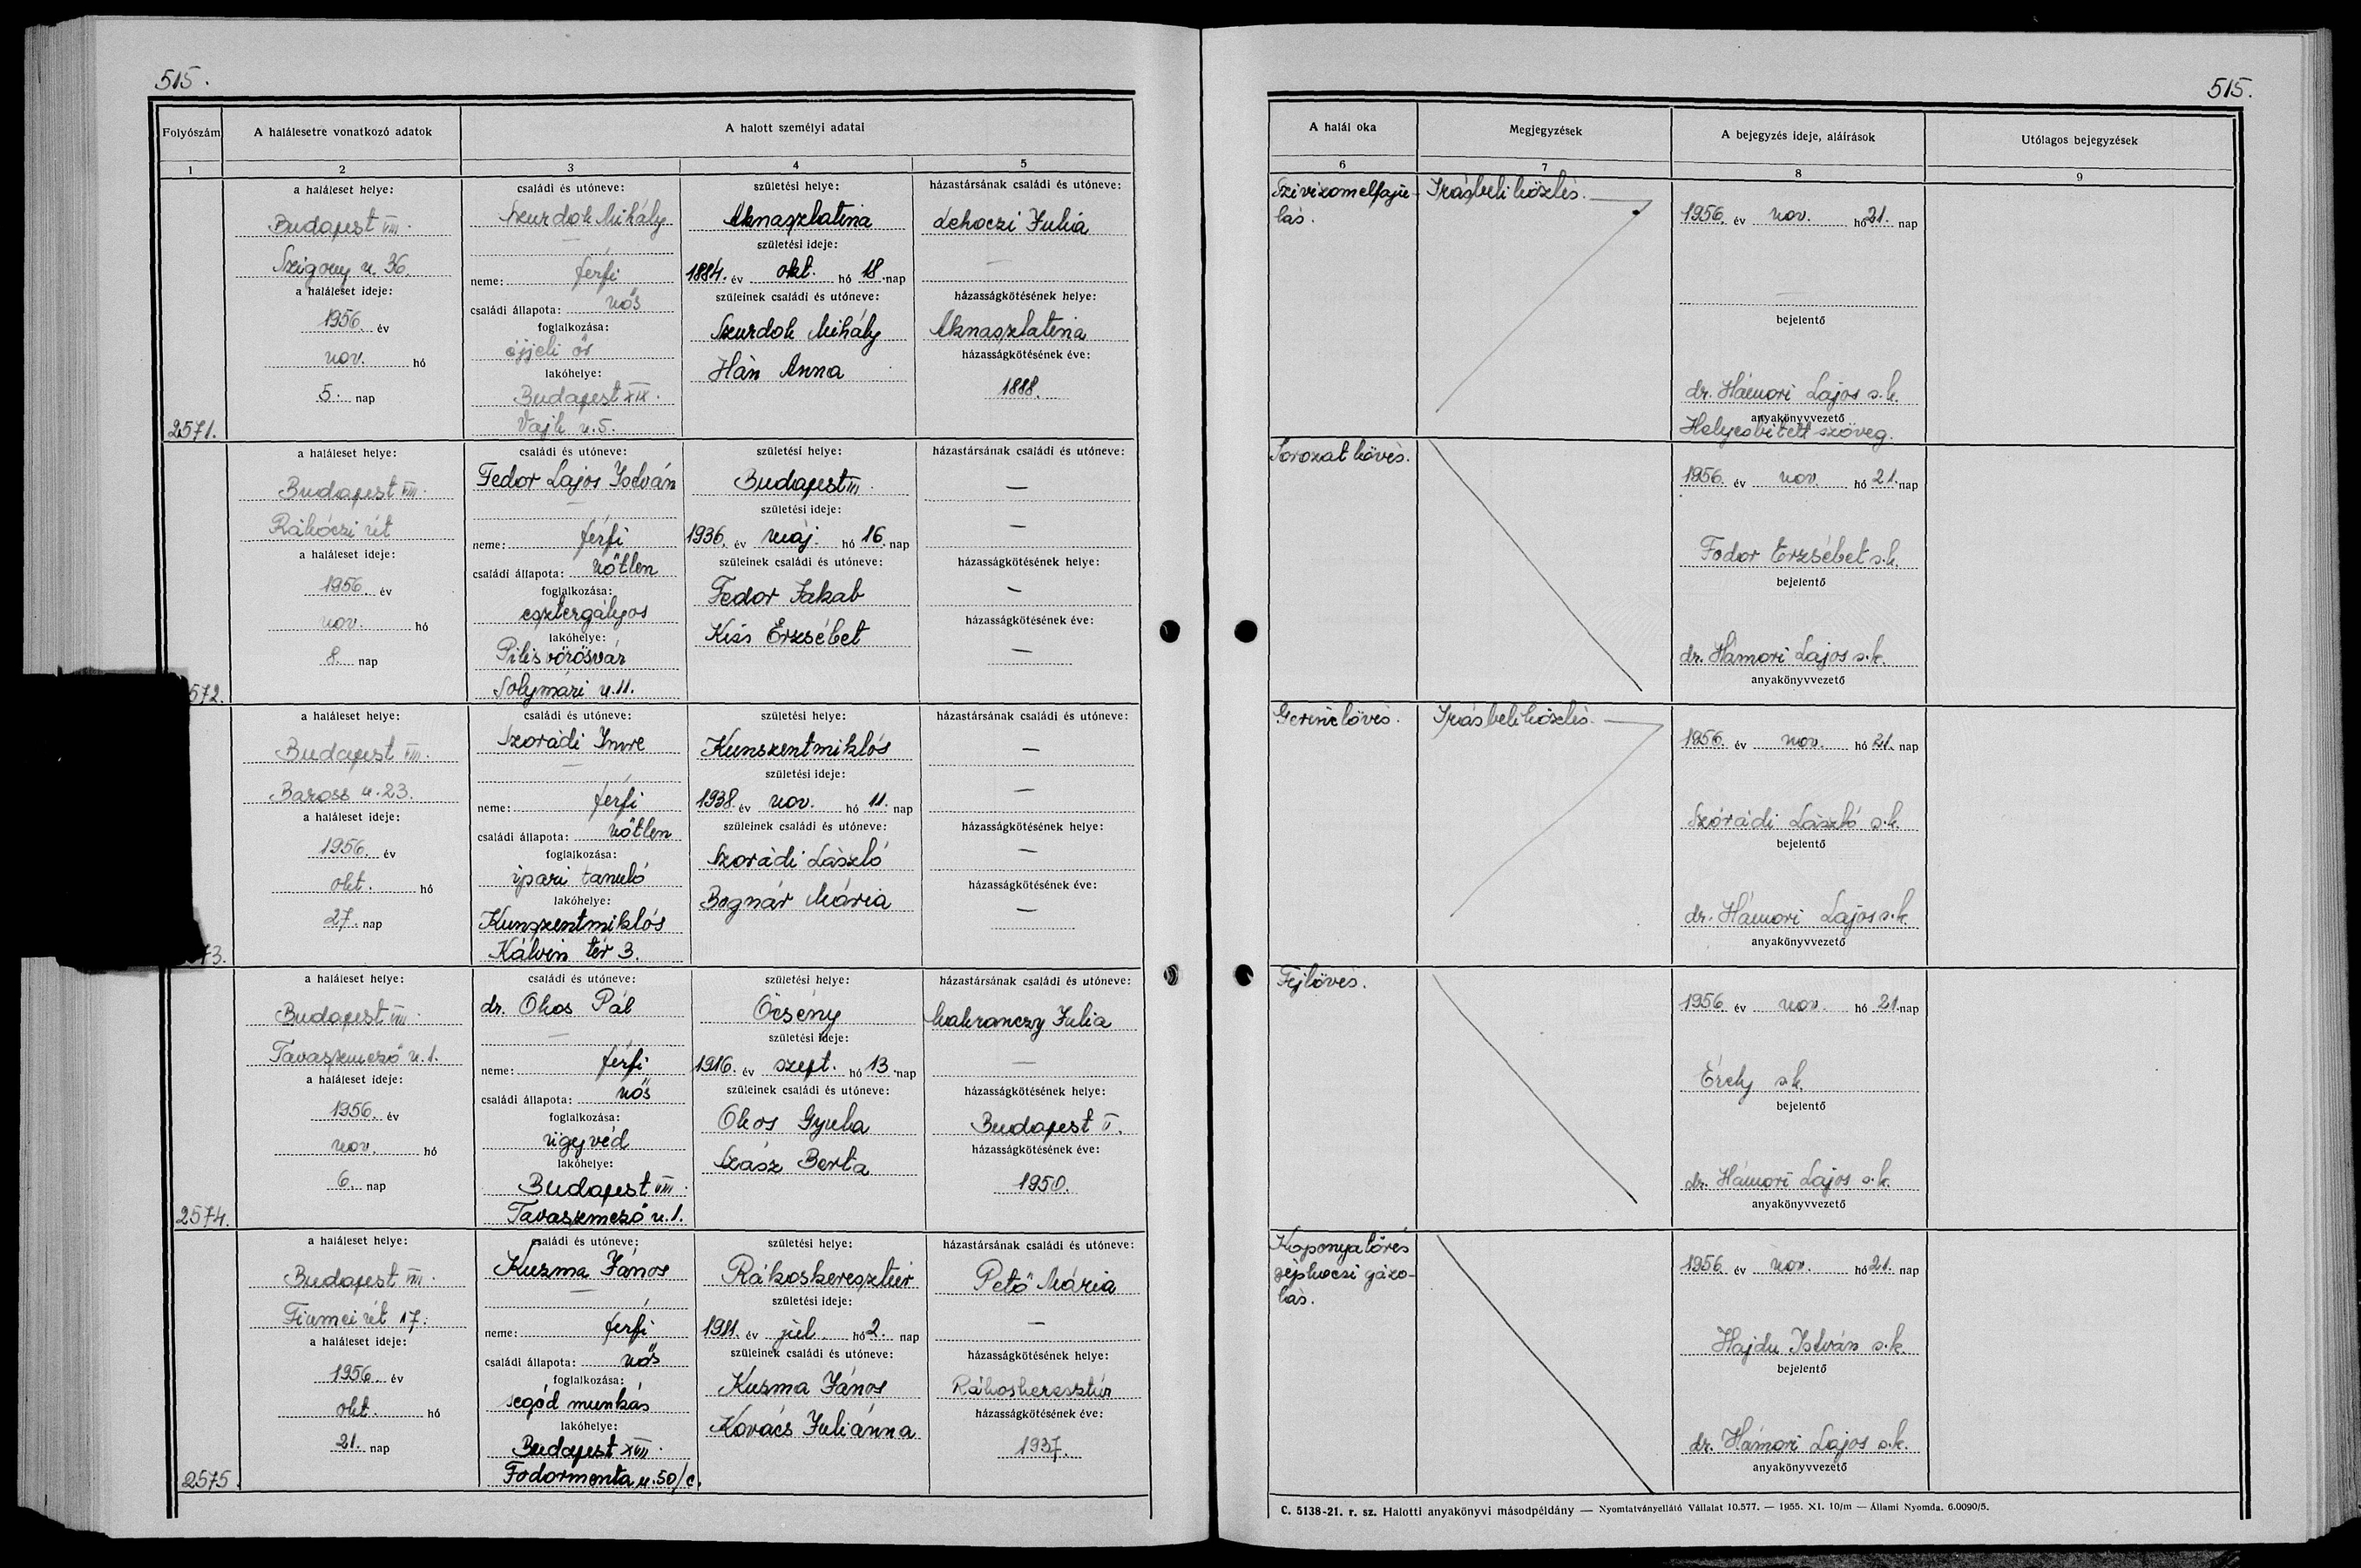 515.
515.
Folyószám
A halálesetre vonatkozó adatok
A halott személyi adatai
1
2
3
4
5
A halál oka
Megjegyzések
A bejegyzés ideje, aláírások
Utólagos bejegyzések
6
7
8
9
2571.
a haláleset helye:
Budapest VIII.
Szigony u. 36.
a haláleset ideje:
1956. év
nov. hó
5. nap
családi és utóneve:
Szurdok Mihály
—
neme: férfi
családi állapota: nős
foglalkozása:
éjjeli őr
lakóhelye:
Budapest XIX.
Vajk u. 5.
születési helye:
Aknaszlatina
születési ideje:
1884. év okt. hó 18. nap
szüleinek családi és utóneve:
Szurdok Mihály
Hán Anna
házastársának családi és utóneve:
Lehoczi Julia
—
házasságkötésének helye:
Aknaszlatina
házasságkötésének éve:
1888.
Szivizomelfaju-
lás.
Irásbeli közlés.
1956. év nov. hó 21. nap
—
bejelentő
dr. Hámori Lajos s.k.
anyakönyvvezető
Helyesbített szöveg.
572.
a haláleset helye:
Budapest VIII.
Rákóczi út
a haláleset ideje:
1956. év
nov. hó
8. nap
családi és utóneve:
Fedor Lajos István
—
neme: férfi
családi állapota: nőtlen
foglalkozása:
esztergályos
lakóhelye:
Pilisvörösvár
Solymári u. 11.
születési helye:
Budapest III.
születési ideje:
1936. év máj. hó 16. nap
szüleinek családi és utóneve:
Fedor Jakab
Kiss Erzsébet
házastársának családi és utóneve:
—
—
házasságkötésének helye:
—
házasságkötésének éve:
—
Sorozatlövés.
1956. év nov. hó 21. nap
Fodor Erzsébet s.k.
bejelentő
dr. Hámori Lajos s.k.
anyakönyvvezető
73.
a haláleset helye:
Budapest VIII.
Baross u. 23.
a haláleset ideje:
1956. év
okt. hó
27. nap
családi és utóneve:
Szorádi Imre
—
neme: férfi
családi állapota: nőtlen
foglalkozása:
ipari tanuló
lakóhelye:
Kunszentmiklós
Kálvin tér 3.
születési helye:
Kunszentmiklós
születési ideje:
1938. év nov. hó 11. nap
szüleinek családi és utóneve:
Szorádi László
Bognár Mária
házastársának családi és utóneve:
—
—
házasságkötésének helye:
—
házasságkötésének éve:
—
Gerinclövés.
Irásbeli közlés.
1956. év nov. hó 21. nap
Szórádi László s.k.
bejelentő
dr. Hámori Lajos s.k.
anyakönyvvezető
2574.
a haláleset helye:
Budapest VIII.
Tavaszmező u. 1.
a haláleset ideje:
1956. év
nov. hó
6. nap
családi és utóneve:
dr. Okos Pál
—
neme: férfi
családi állapota: nős
foglalkozása:
ügyvéd
lakóhelye:
Budapest VIII.
Tavaszmező u. 1.
születési helye:
Őcsény
születési ideje:
1916. év szept. hó 13. nap
szüleinek családi és utóneve:
Okos Gyula
Szász Berta
házastársának családi és utóneve:
Makranczy Julia
—
házasságkötésének helye:
Budapest V.
házasságkötésének éve:
1950.
Fejlövés.
1956. év nov. hó 21. nap
Érely s.k.
bejelentő
dr. Hámori Lajos s.k.
anyakönyvvezető
2575.
a haláleset helye:
Budapest VIII.
Fiumei út 17.
a haláleset ideje:
1956. év
okt. hó
21. nap
családi és utóneve:
Kuzma János
—
neme: férfi
családi állapota: nős
foglalkozása:
segéd munkás
lakóhelye:
Budapest XVII.
Fodormenta u. 50/c.
születési helye:
Rákoskeresztúr
születési ideje:
1911. év júl. hó 2. nap
szüleinek családi és utóneve:
Kuzma János
Kovács Juliánna
házastársának családi és utóneve:
Pető Mária
—
házasságkötésének helye:
Rákoskeresztúr
házasságkötésének éve:
1937.
Koponyatörés
gépkocsi gázo-
lás.
1956. év nov. hó 21. nap
Hajdu István s.k.
bejelentő
dr. Hámori Lajos s.k.
anyakönyvvezető
C. 5138-21. r. sz. Halotti anyakönyvi másodpéldány — Nyomtatványellátó Vállalat 10.577. — 1955. XI. 10/m — Állami Nyomda. 6.0090/5.